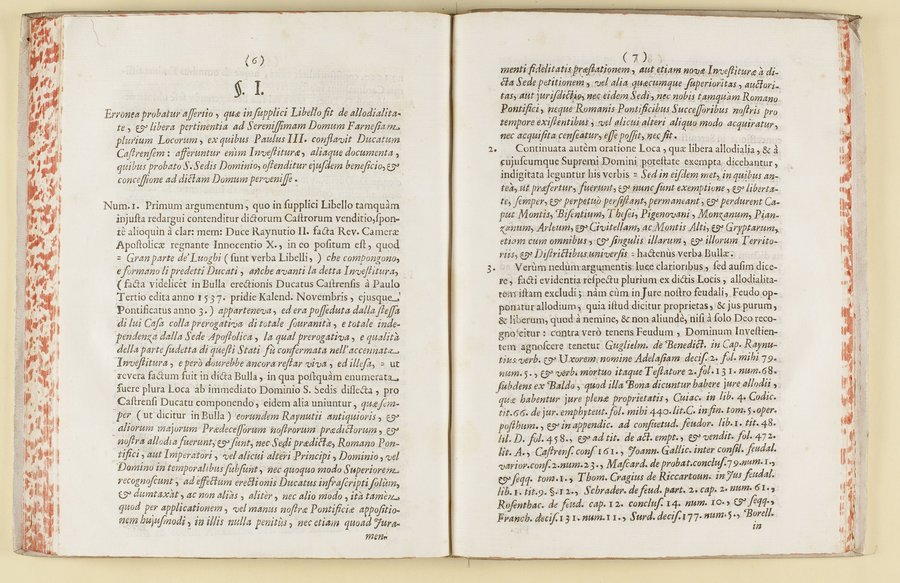 (6)
§. I.
Erronea probatur assertio, quæ in supplici Libello fit de allodialita-
te, & libera pertinentia ad Serenissimam Domum Farnesiam
plurium Locorum, ex quibus Paulus III. constavit Ducatum
Castrensem: afferuntur enim Investituræ, aliaque documenta,
quibus probato S. Sedis Dominio, ostenditur ejusdem beneficio, &
concessione ad dictam Domum pervenisse.
Num. 1. Primum argumentum, quo in supplici Libello tamquàm
injusta redargui contenditur dictorum Castrorum venditio, spon-
tè alioquin à clar: mem: Duce Raynutio II. facta Rev. Cameræ
Apostolicæ regnante Innocentio X., in eo positum est, quod
= Gran parte de' Luoghi (sunt verba Libelli,) che compongono,
e formano li predetti Ducati, anche avanti la detta Investitura,
(facta videlicèt in Bulla erectionis Ducatus Castrensis à Paulo
Tertio edita anno 1537. pridie Kalend. Novembris, ejusque
Pontificatus anno 3.) apparteneva, ed era posseduta dalla stessa
di lui Casa colla prerogativa di totale souranità, e totale inde-
pendenza dalla Sede Apostolica, la qual prerogativa, e qualità
della parte sudetta di questi Stati fù confermata nell' accennata
Investitura, e però dourebbe ancora restar viva, ed illesa, = ut
revera factum fuit in dicta Bulla, in qua postquàm enumerata
fuere plura Loca ab immediato Dominio S. Sedis dissecta, pro
Castrensi Ducatu componendo, eidem alia uniuntur, quæ sem-
per (ut dicitur in Bulla) eorundem Raynutii antiquioris, &
aliorum majorum Prædecessorum nostrorum prædictorum, &
nostra allodia fuerunt, & sunt, nec Sedi prædictæ, Romano Pon-
tifici, aut Imperatori, vel alicui alteri Principi, Dominio, vel
Domino in temporalibus subsunt, nec quoquo modo Superiorem
recognoscunt, ad effectum erectionis Ducatus infrascripti solùm,
& dumtaxàt, ac non aliàs, alitèr, nec alio modo, ità tamèn
quod per applicationem, vel manus nostræ Pontificiæ appositio-
nem hujusmodi, in illis nulla penitùs, nec etiam quoad Jura-
men-
(7)
menti fidelitatis præstationem, aut etiam novæ Investituræ à di-
cta Sede petitionem, vel alia quæcumque superioritas, auctori-
tas, aut jurisdictio, nec eidem Sedi, nec nobis tamquàm Romano
Pontifici, neque Romanis Pontificibus Successoribus nostris pro
tempore existentibus, vel alicui alteri aliquo modo acquiratur,
nec acquisita censeatur, esse possit, nec sit.
2. Continuata autèm oratione Loca, quæ libera allodialia, & à
cujuscumque Supremi Domini potestate exempta dicebantur,
indigitata leguntur his verbis = Sed in eisdem met, in quibus an-
teà, ut præfertur, fuerunt, & nunc sunt exemptione, & liberta-
te, semper, & perpetuò persistant, permaneant, & perdurent Ca-
put Montis, Bisentium, Thesei, Pigenovani, Monzanum, Pian-
zanum, Arleum, & Civitellam, ac Montis Alti, & Gryptarum,
etiam cum omnibus, & singulis illarum, & illorum Territo-
riis, & Districtibus universis = hactenùs verba Bullæ.
3. Verùm nedùm argumentis luce clarioribus, sed ausim dice-
re, facti evidentia respectu plurium ex dictis Locis, allodialita-
tem istam excludi; nàm cùm in Jure nostro feudali, Feudo op-
ponatur allodium, quia istud dicitur proprietas, & jus purum,
& liberum, quod à nemine, & non aliundè, nisi à solo Deo reco-
gnoscitur: contra verò tenens Feudum, Dominum Investien-
tem agnoscere tenetur Guglielm. de Benedict. in Cap. Raynu-
tius verb. & Uxorem nomine Adelasiam decis. 2. fol. mihi 79.
num. 5., & verb. mortuo itaque Testatore 2. fol. 131. num. 68.
subdens ex Baldo, quod illa Bona dicuntur habere jure allodii,
quæ habentur jure plenæ proprietatis, Cuiac. in lib. 4. Codic.
tit. 66. de jur. emphyteut. fol. mihi 440. lit. C. in fin. tom. 5. oper.
posthum., & in appendic. ad consuetud. feudor. lib. 1. tit. 48.
lit. D. fol. 458., & ad tit. de act. empt., & vendit. fol. 472.
lit. A., Castrens. cons 161., Joann. Gallic. inter consil. feudal.
varior. cons. 2. num. 23., Mascard. de probat. conclus. 79. num. 1.,
& seqq. tom. 1., Thom. Cragius de Riccartoun. in Jus feudal.
lib. 1. tit. 9. §. 12., Schrader. de feud. part. 2. cap. 2. num. 61.,
Rosenthac. de feud. cap. 12. conclus. 14. num. 10., & seqq.,
Franch. decis. 131. num. 11., Surd. decis. 177. num. 5., Borell.
in